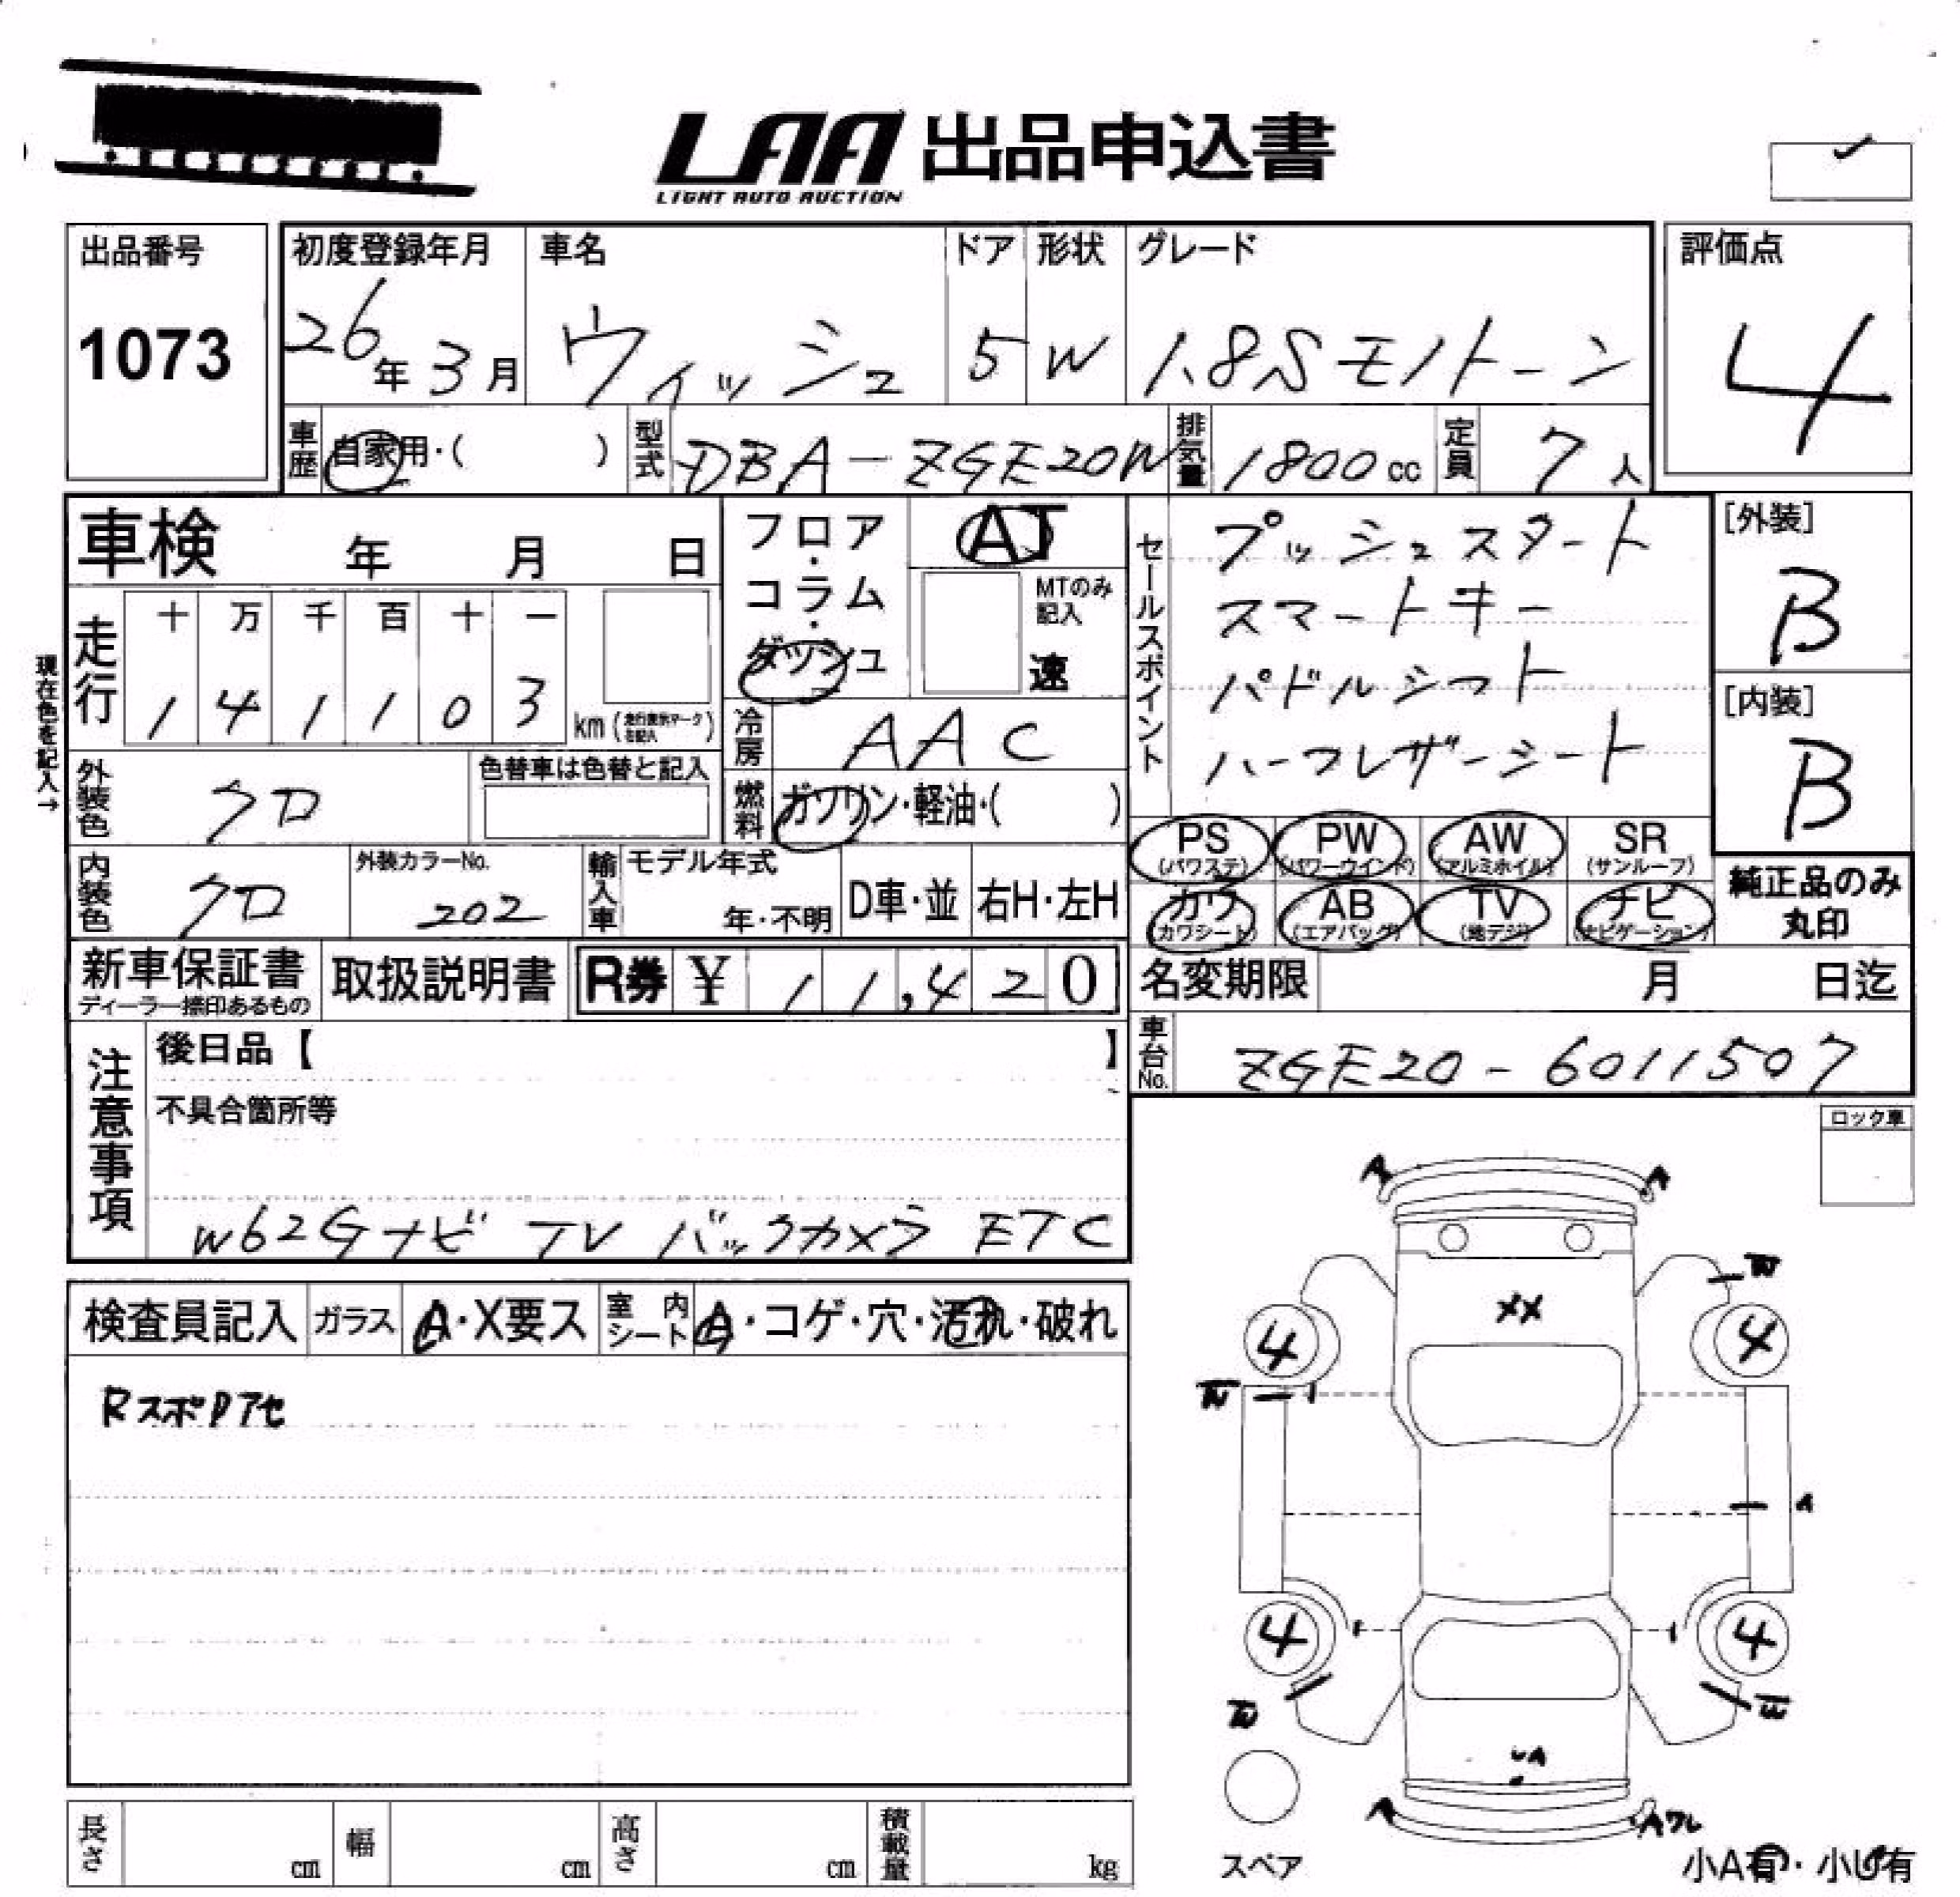 LAA 出品申込書
LIGHT AUTO AUCTION
出品番号
1073
初度登録年月
26年 3月
車名
ウィッシュ
ドア
5
形状
W
グレード
1.8S モノトーン
評価点
4
車歴 自家用・( )
型式 DBA-ZGE20W
排気量 1800cc
定員 7人
車検 年 月 日
走行
十 万 千 百 十 一
1 4 1 1 0 3 km(走行表示マークを記入)
現在色を記入→
外装色 クロ
色替車は色替と記入
フロア・コラム・ダッシュ
AT
MTのみ記入
速
冷房 AAC
燃料 ガソリン・軽油・( )
セールスポイント
プッシュスタート
スマートキー
パドルシフト
ハーフレザーシート
[外装]
B
[内装]
B
PS (パワステ)
PW (パワーウインド)
AW (アルミホイル)
SR (サンルーフ)
カワ (カワシート)
AB (エアバッグ)
TV (地デジ)
ナビ (ナビゲーション)
純正品のみ丸印
内装色 クロ
外装カラーNo.
202
輸入車
モデル年式
年・不明
D車・並
右H・左H
新車保証書
ディーラー捺印あるもの
取扱説明書
R券 ¥ 11,420
名変期限 月 日迄
車台No. ZGE20-6011507
注意事項
後日品【 】
不具合箇所等
W62Gナビ TV バックカメラ ETC
ロック車
検査員記入
ガラス A・X要ス
室内シート A・コゲ・穴・汚れ・破れ
RスポDアセ
A A
W
XX
4 4
W
A
4 4
W W
UA
A Aワレ
スペア
小A有・小U有
長さ cm
幅 cm
高さ cm
積載量 kg